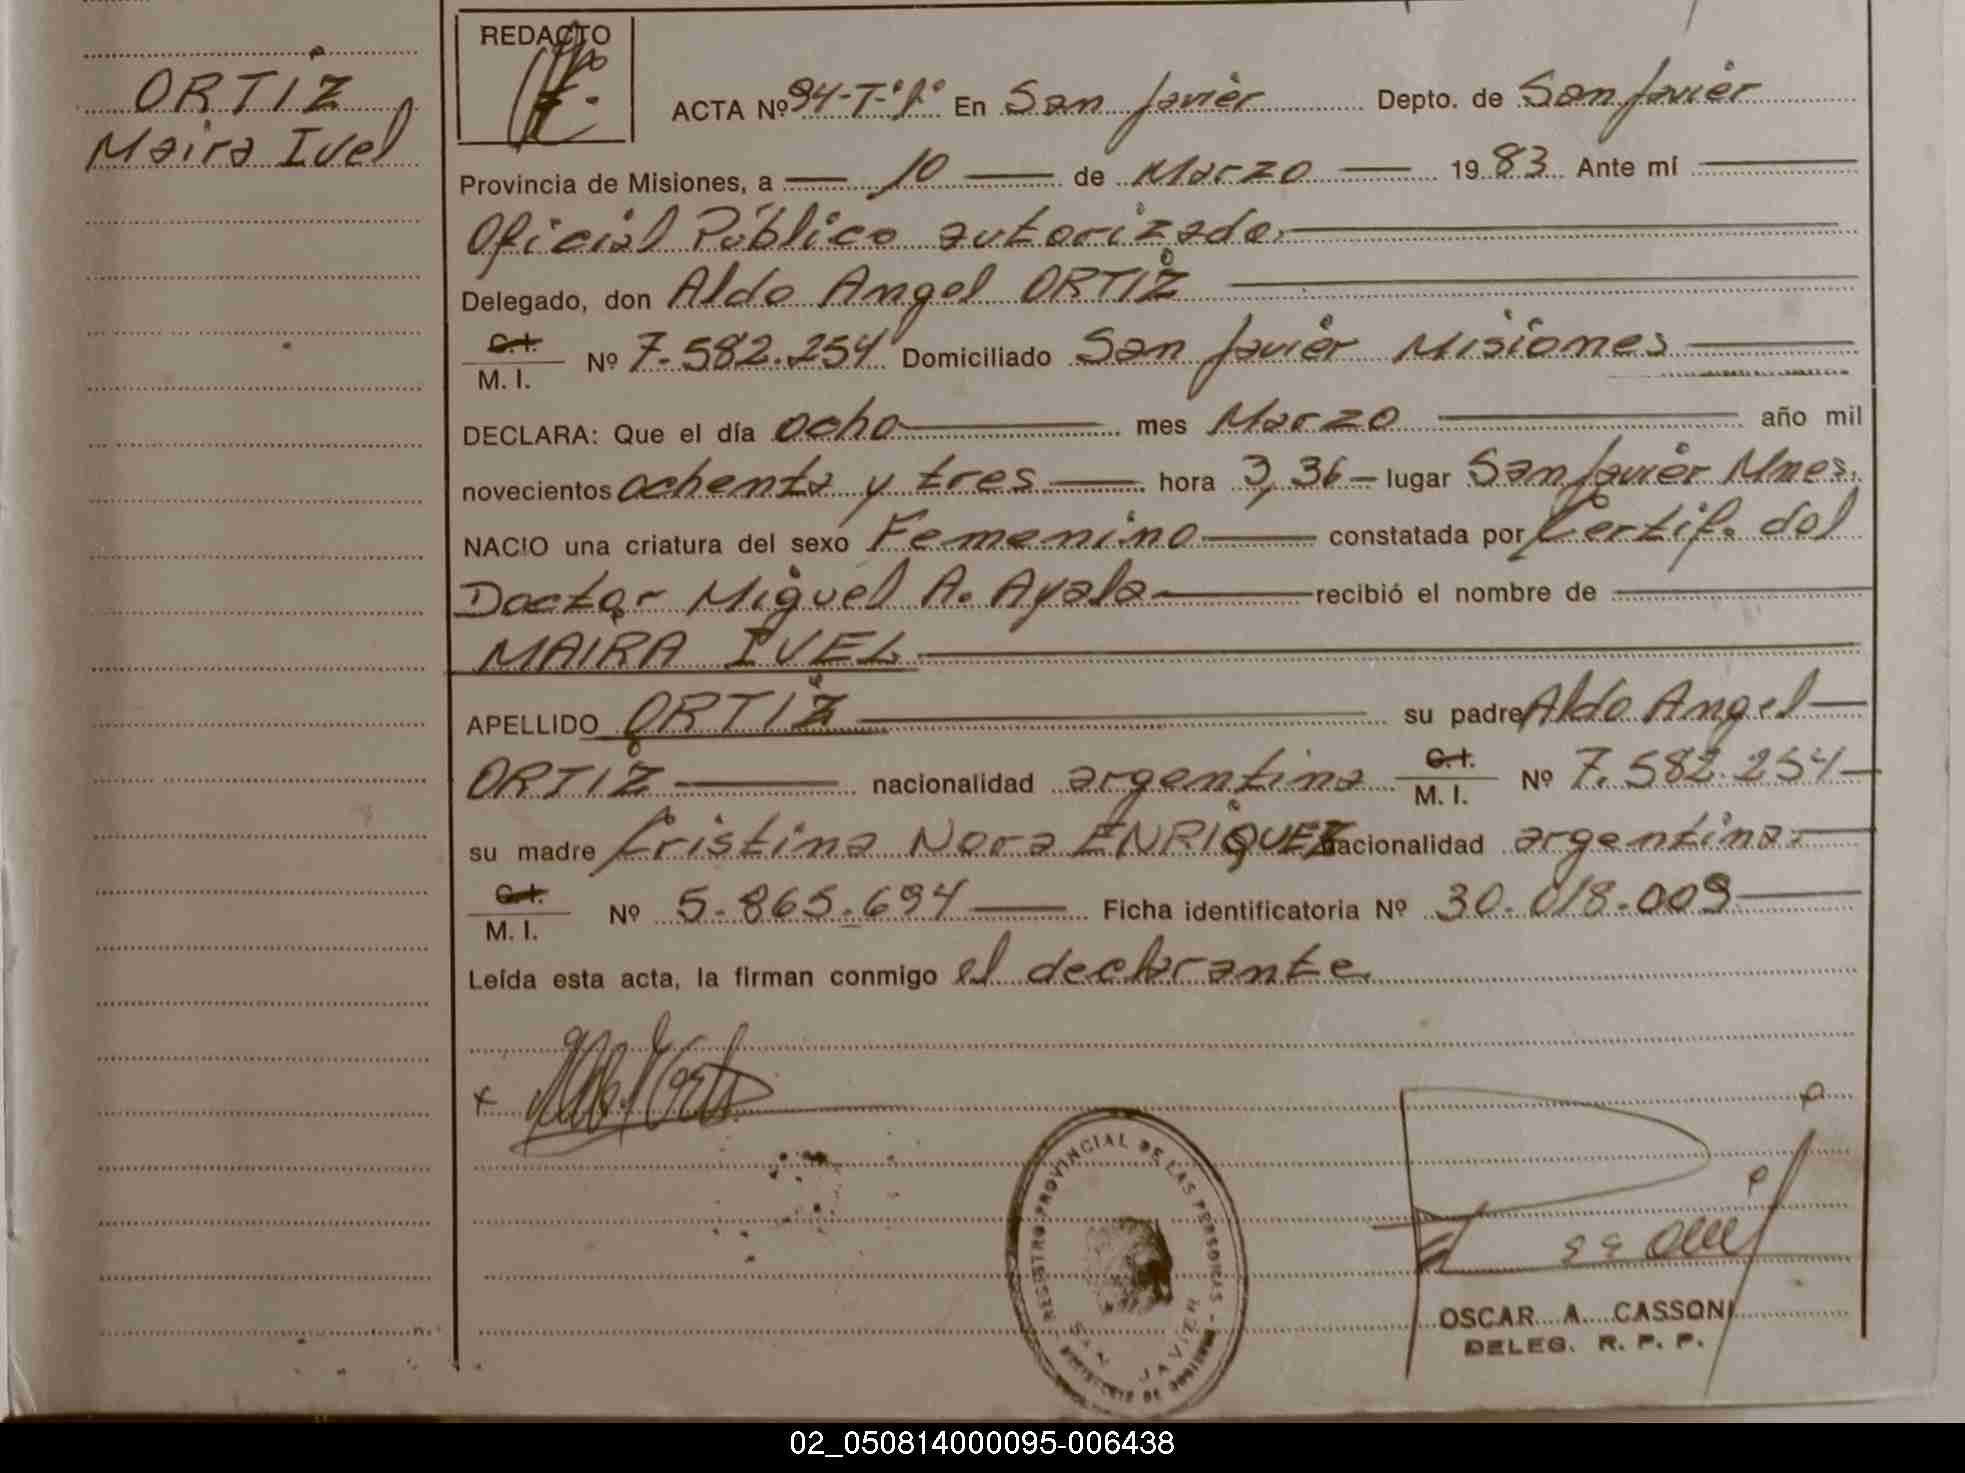 ORTIZ
Maira Ivel
REDACTO
ACTA Nº 94-T-1º En San Javier Depto. de San Javier
Provincia de Misiones, a 10 de Marzo 1983 Ante mí
Oficial Público autorizado.
Delegado, don Aldo Angel ORTIZ
C.I.
M. I. Nº 7.582.254 Domiciliado San Javier Misiones
DECLARA: Que el día ocho mes Marzo año mil
novecientos ochenta y tres hora 3,36 lugar San Javier Mnes.
NACIO una criatura del sexo Femenino constatada por Certif. del
Doctor Miguel A. Ayala recibió el nombre de
MAIRA IVEL
APELLIDO ORTIZ su padre Aldo Angel
ORTIZ nacionalidad argentina C.I. M. I. Nº 7.582.254
su madre Cristina Nora ENRIQUEZ nacionalidad argentina.
C.I.
M. I. Nº 5.865.694 Ficha identificatoria Nº 30.018.009
Leída esta acta, la firman conmigo el declarante.
REGISTRO PROVINCIAL DE LAS PERSONAS
SAN JAVIER
OSCAR A. CASSONI
DELEG. R. P. P.
02_050814000095-006438